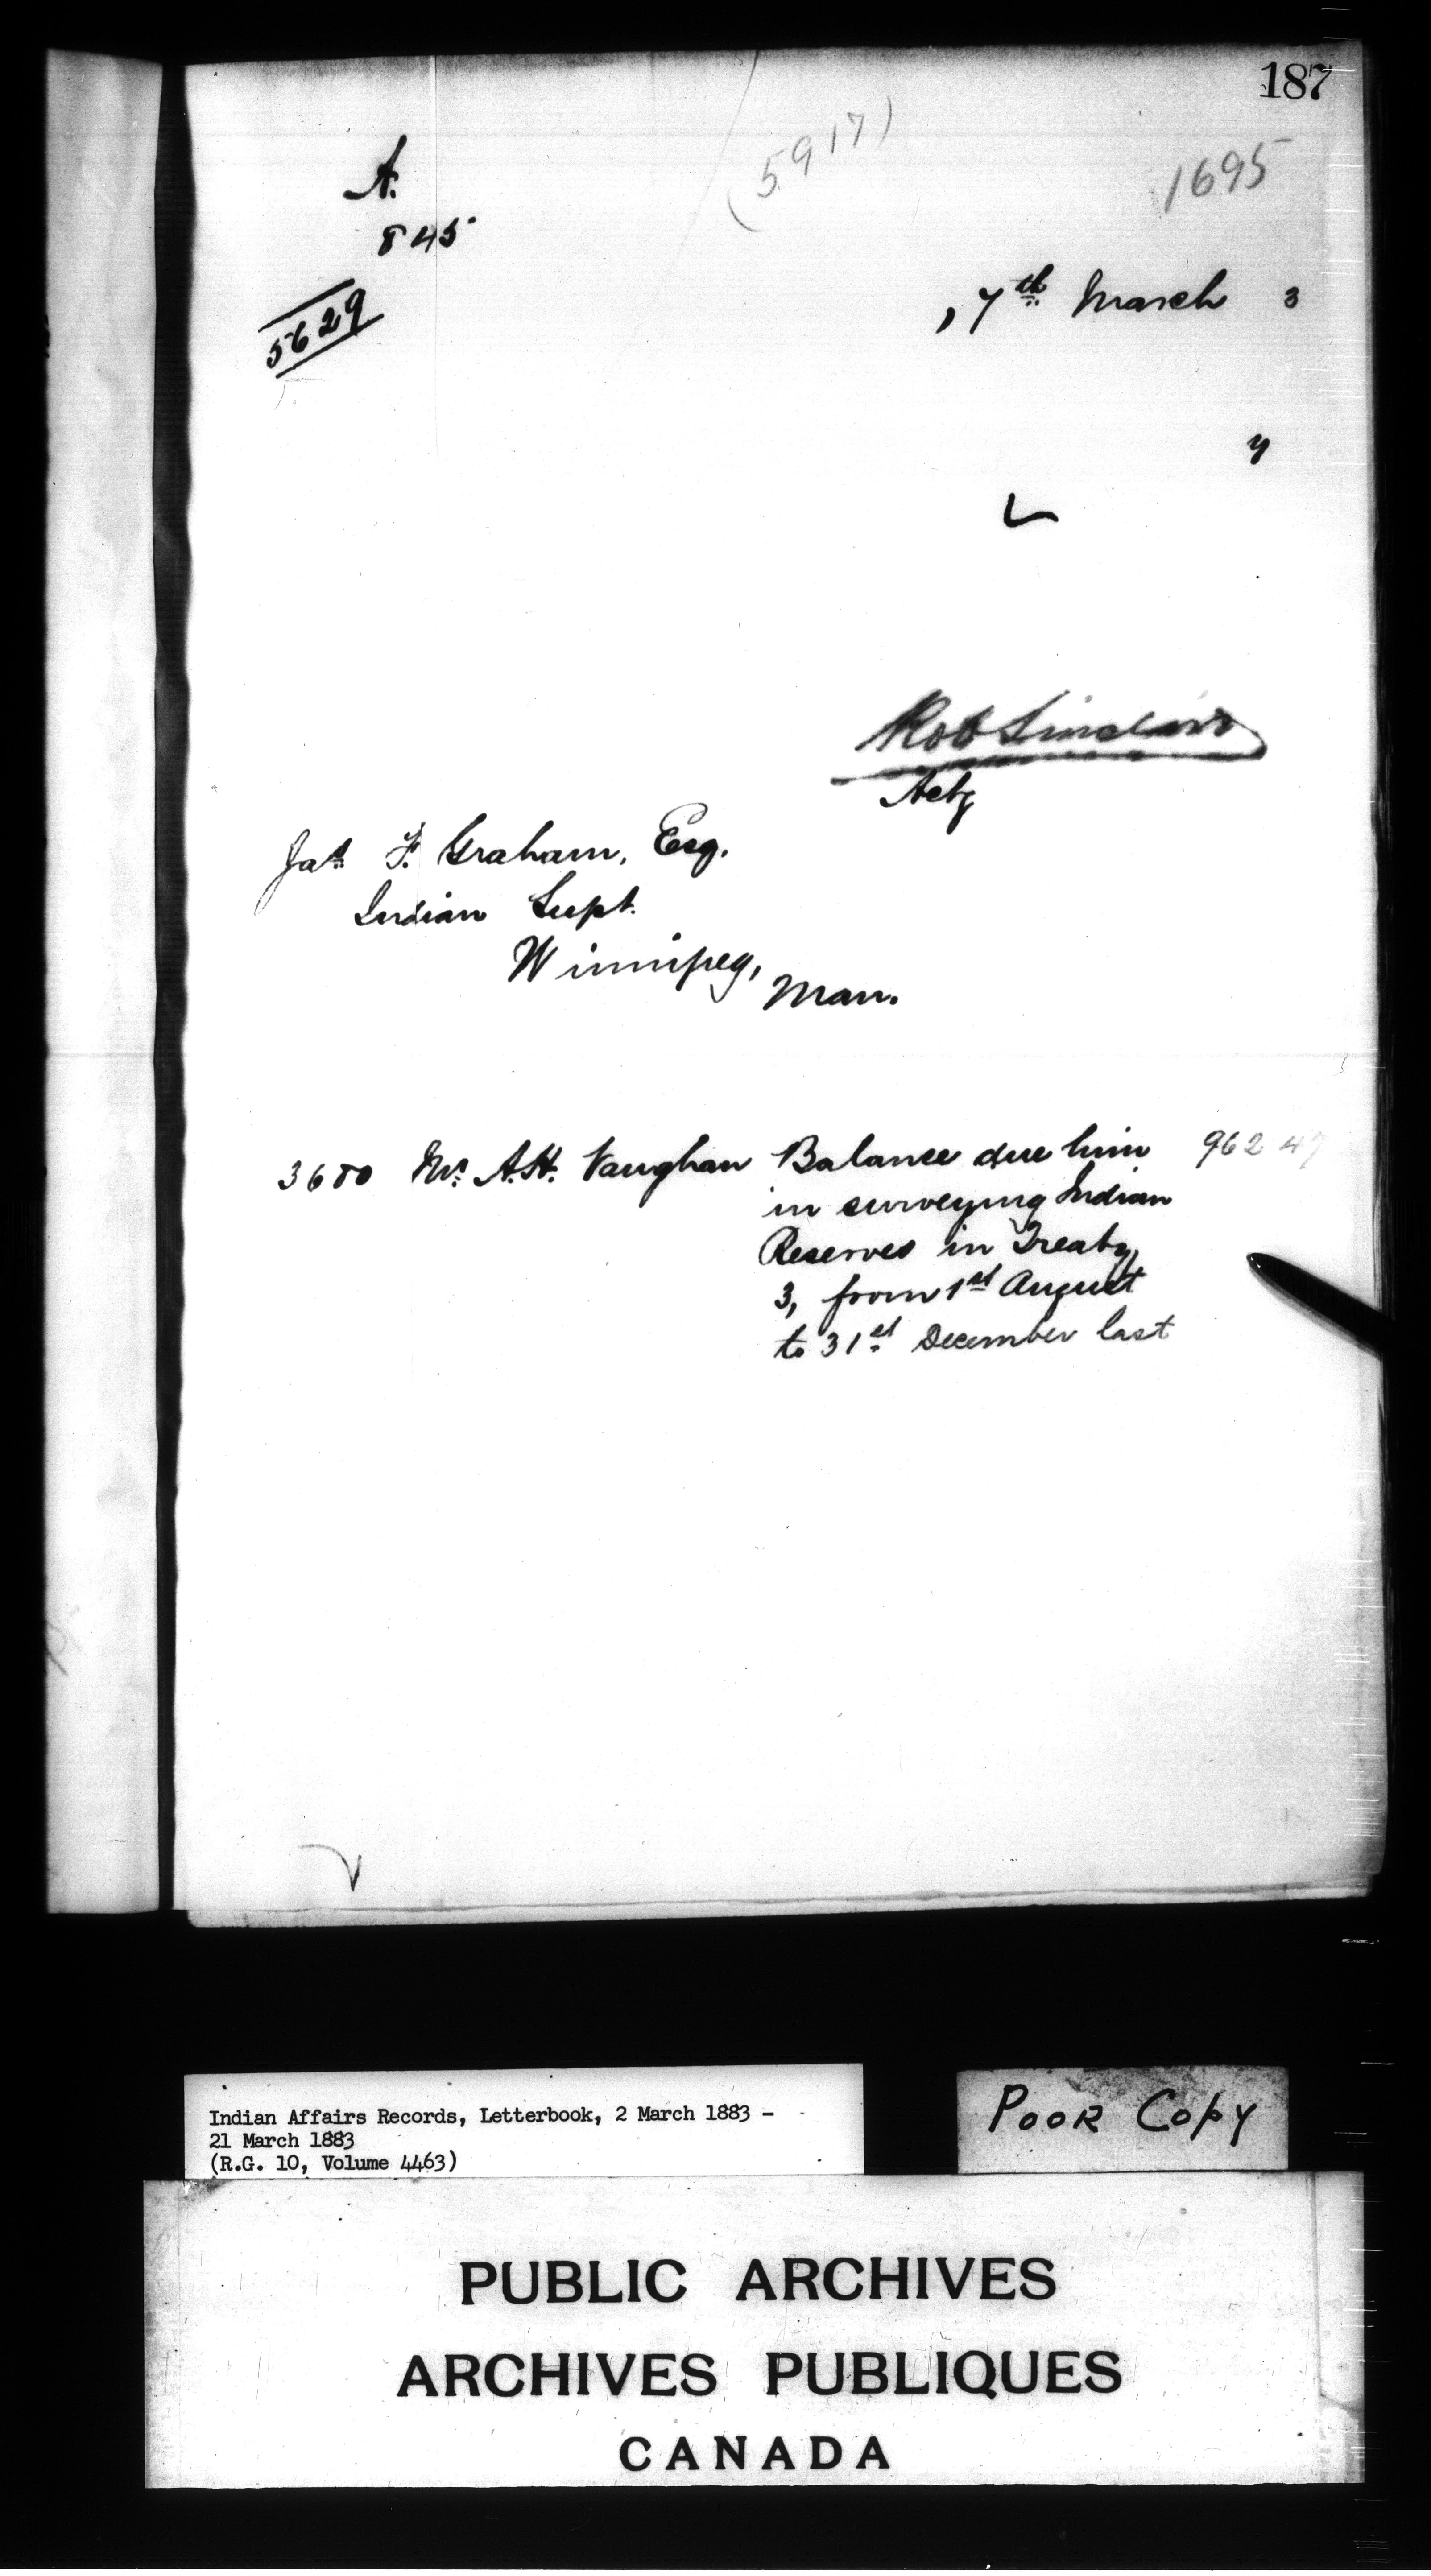 187
A.
845
(5917)
1695
5629
, 7th March 3
y
Rob Sinclair
Actg
Jas. F. Graham, Esq.
Indian Supt.
Winnipeg,
Man.
3680 Mr. A.H. Vaughan Balance due him 962 47
in surveying Indian
Reserves in Treaty
3, from 1st August
to 31st December last
Indian Affairs Records, Letterbook, 2 March 1883 -
21 March 1883
(R.G. 10, Volume 4463)
POOR COPY
PUBLIC ARCHIVES
ARCHIVES PUBLIQUES
CANADA